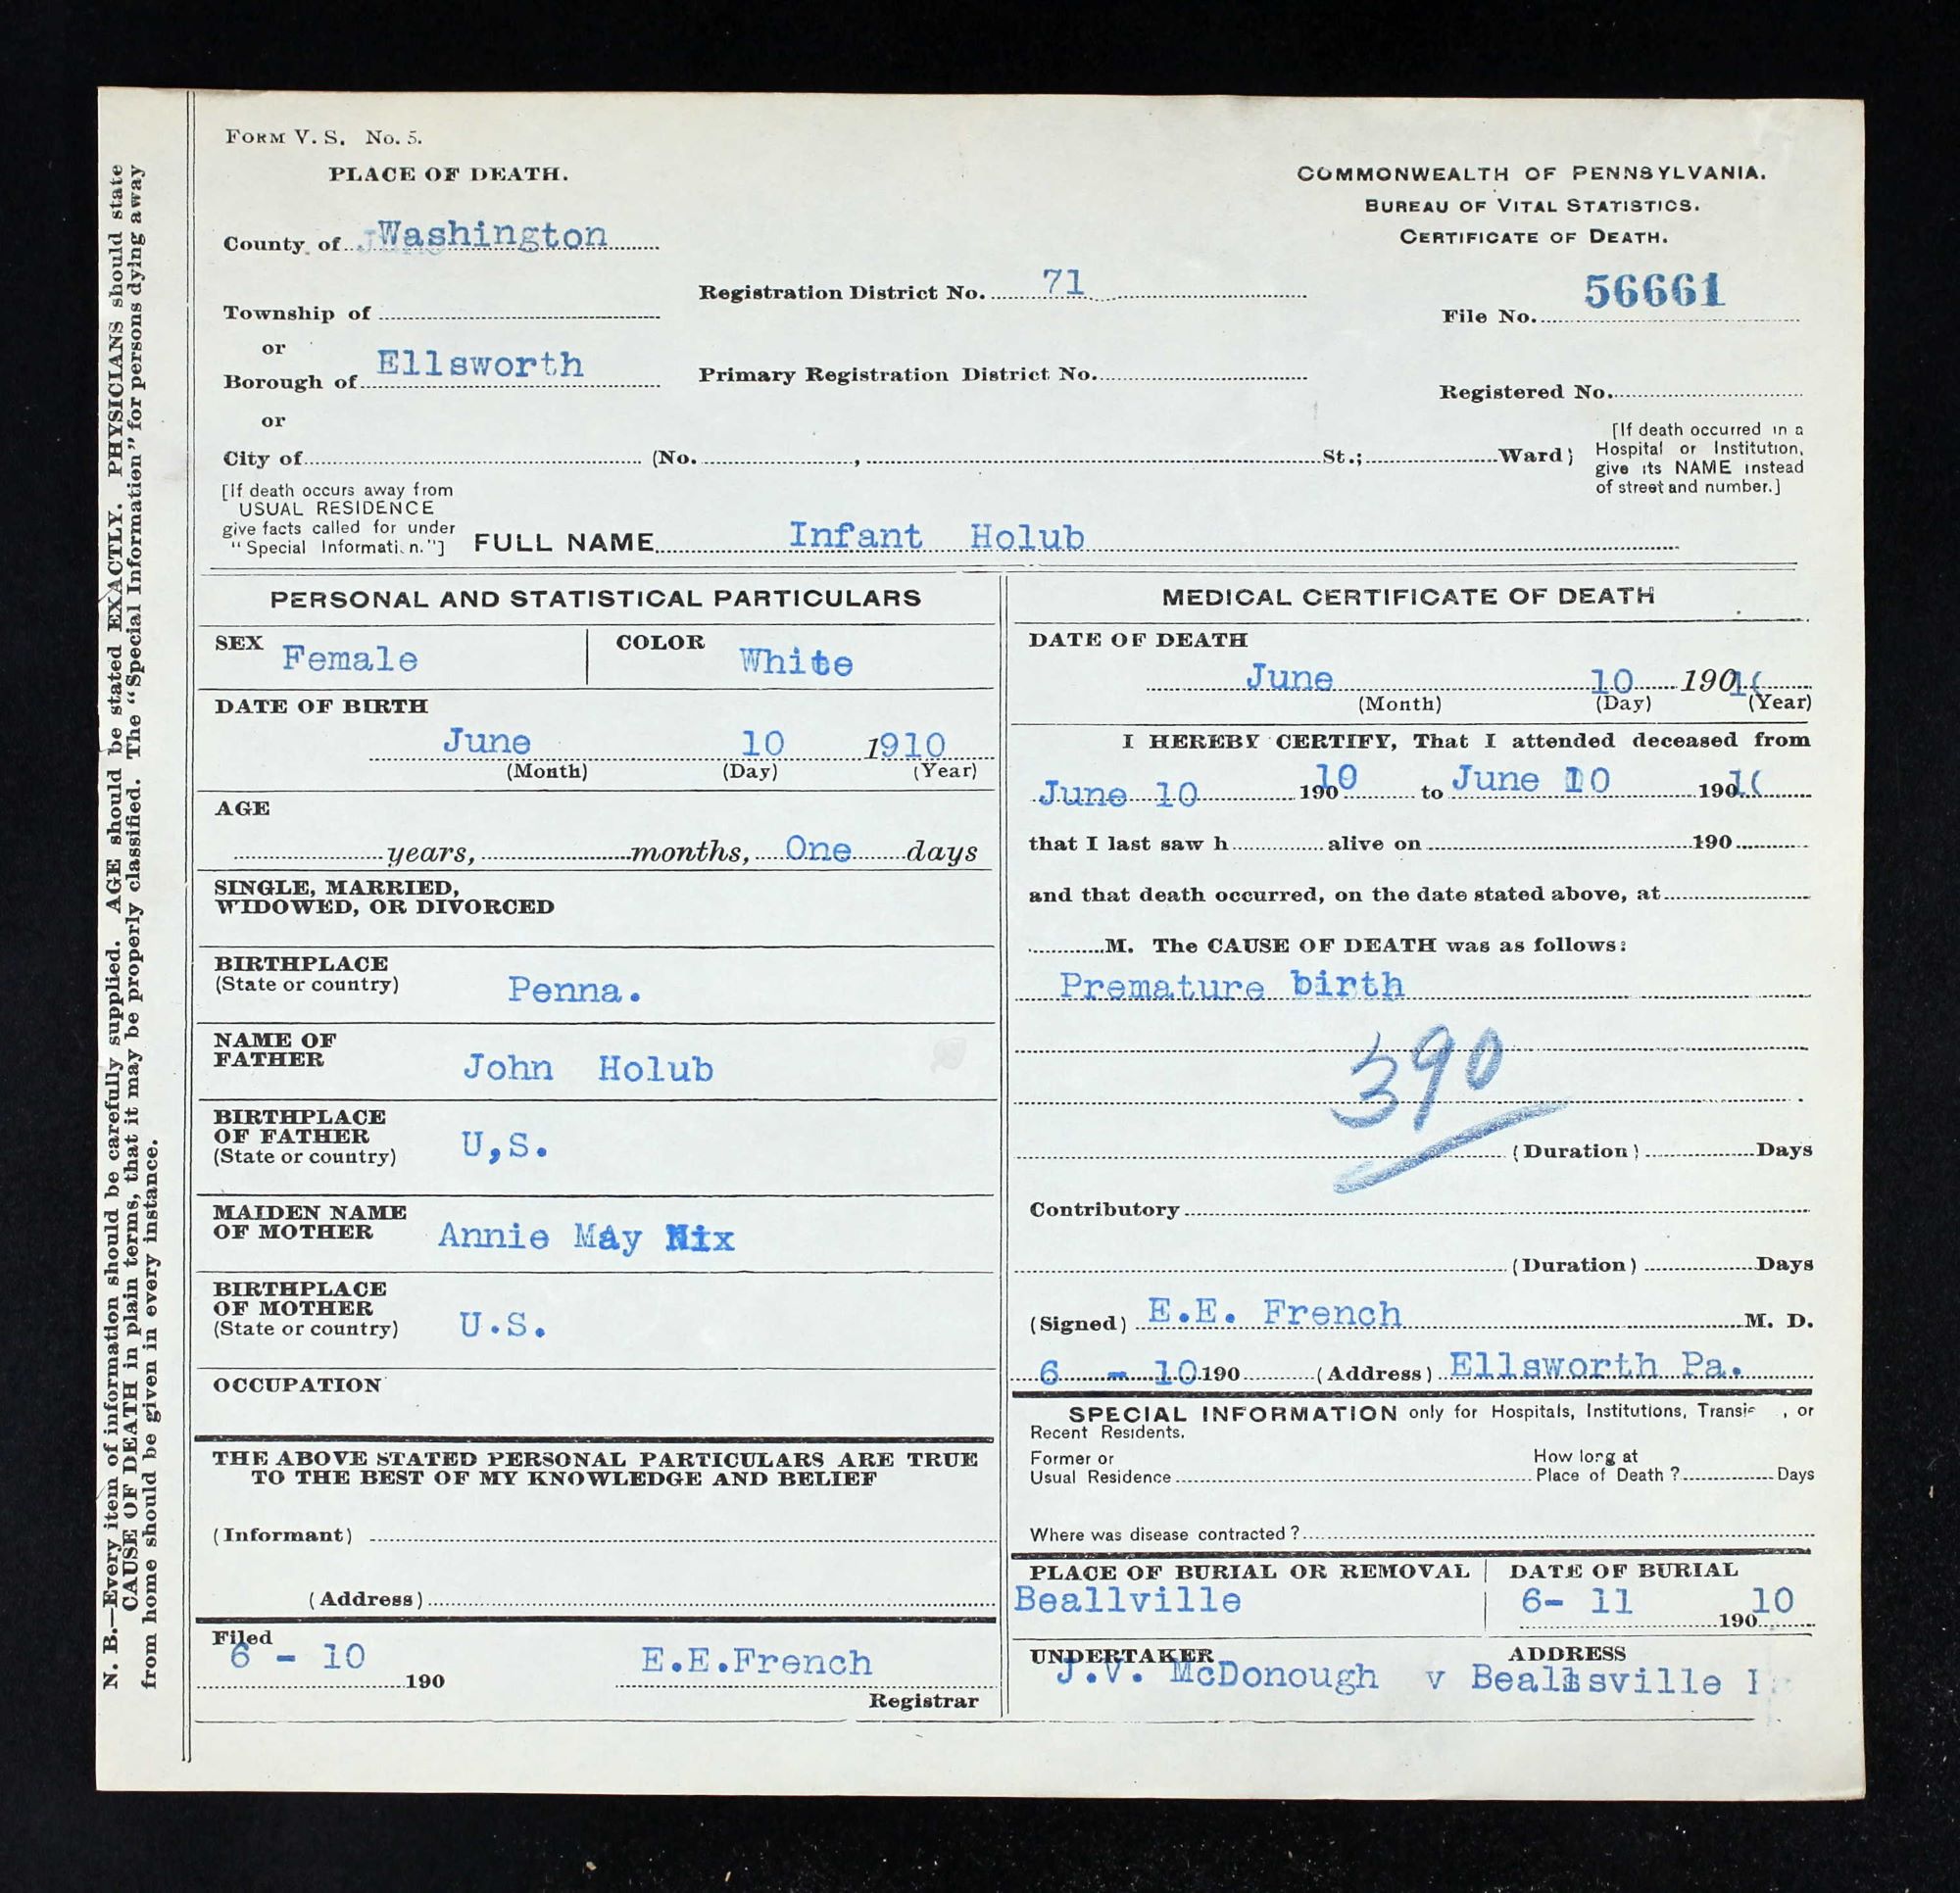 FORM V. S. No. 5.
PLACE OF DEATH.
COMMONWEALTH OF PENNSYLVANIA.
BUREAU OF VITAL STATISTICS.
CERTIFICATE OF DEATH.
County of Washington
Registration District No. 71
File No. 56661
Township of
or
Borough of Ellsworth
Primary Registration District No.
Registered No.
or
City of (No. , St.; Ward)
[If death occurred in a
Hospital or Institution,
give its NAME instead
of street and number.]
[If death occurs away from
USUAL RESIDENCE
give facts called for under
"Special Informati n."]
FULL NAME Infant Holub
PERSONAL AND STATISTICAL PARTICULARS
SEX Female
COLOR White
DATE OF BIRTH
June 10 1910
(Month) (Day) (Year)
AGE
years, months, One days
SINGLE, MARRIED,
WIDOWED, OR DIVORCED
BIRTHPLACE
(State or country) Penna.
NAME OF
FATHER John Holub
BIRTHPLACE
OF FATHER
(State or country) U,S.
MAIDEN NAME
OF MOTHER Annie May Nix
BIRTHPLACE
OF MOTHER
(State or country) U.S.
OCCUPATION
THE ABOVE STATED PERSONAL PARTICULARS ARE TRUE
TO THE BEST OF MY KNOWLEDGE AND BELIEF
(Informant)
(Address)
Filed
6 - 10 190 E.E.French
Registrar
MEDICAL CERTIFICATE OF DEATH
DATE OF DEATH
June 10 1901(
(Month) (Day) (Year)
I HEREBY CERTIFY, That I attended deceased from
June 10 190 10 to June 10 1901(
that I last saw h alive on 190
and that death occurred, on the date stated above, at
M. The CAUSE OF DEATH was as follows:
Premature birth
390
(Duration) Days
Contributory
(Duration) Days
(Signed) E.E. French M. D.
6 - 10 190 (Address) Ellsworth Pa.
SPECIAL INFORMATION only for Hospitals, Institutions, Transi , or
Recent Residents.
Former or
Usual Residence
How long at
Place of Death ? Days
Where was disease contracted ?
PLACE OF BURIAL OR REMOVAL
Beallville
DATE OF BURIAL
6- 11 190 10
UNDERTAKER
J.V. McDonough v
ADDRESS
Beallsville
N. B.—Every item of information should be carefully supplied. AGE should be stated EXACTLY. PHYSICIANS should state
CAUSE OF DEATH in plain terms, that it may be properly classified. The "Special Information" for persons dying away
from home should be given in every instance.